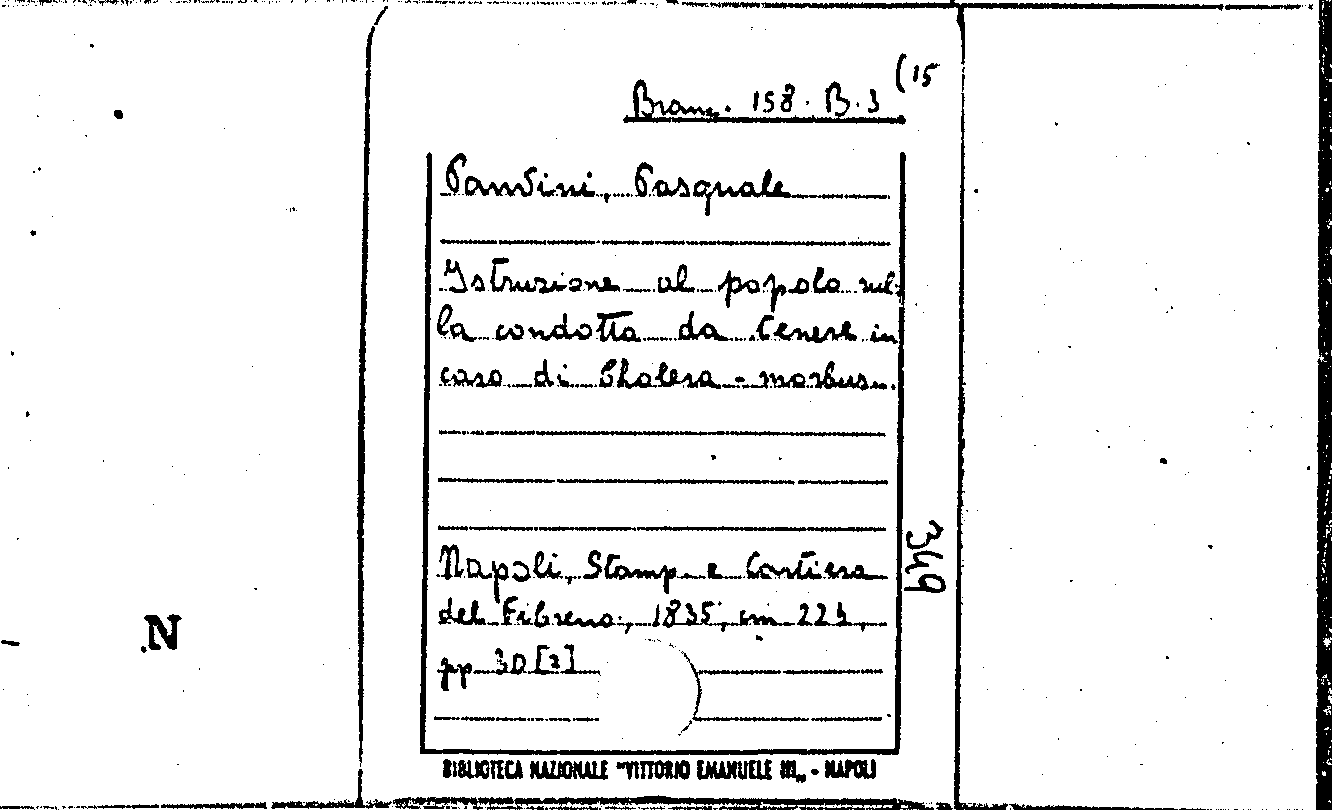 (15
Branc. 158. B. 3
Pandini, Pasquale
Istruzione al popolo sul-
la condotta da tenere in
caso di Cholera-morbus..
349
Napoli, Stamp. e Cartiera
del Fibreno, 1835, cm 22
N
pp 30 [2]
BIBLIOTECA NAZIONALE "VITTORIO EMANUELE III„ - NAPOLI